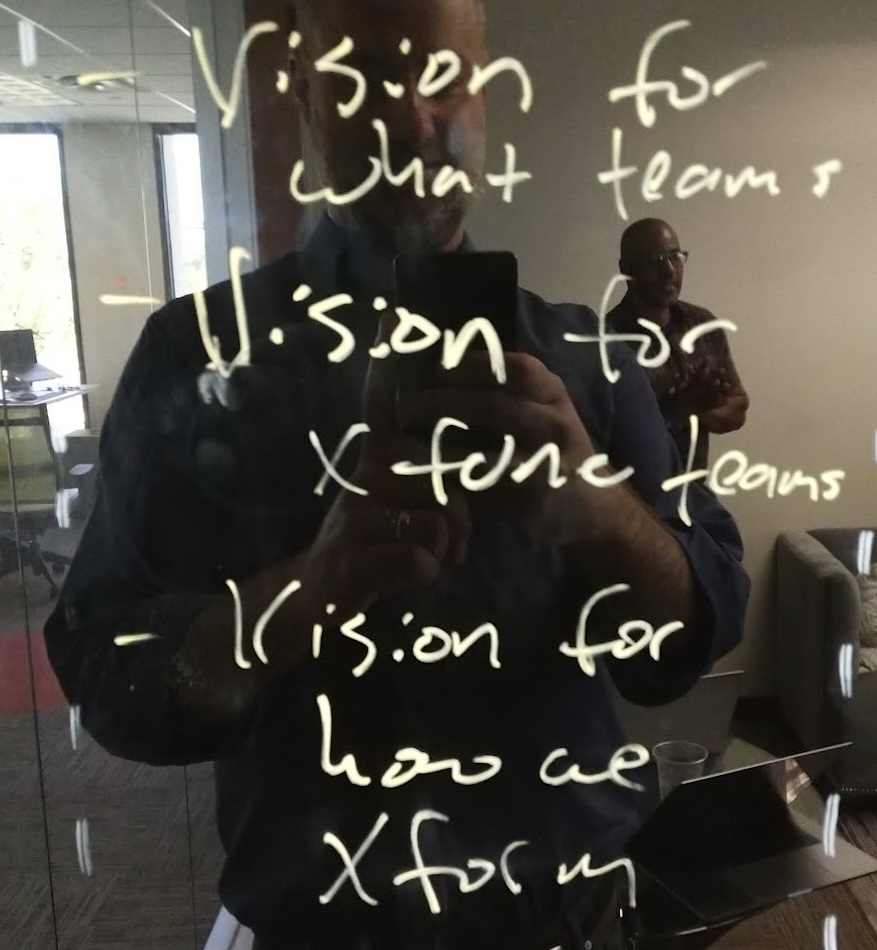 - Vision for
what teams
- Vision for
x func teams
- Vision for
how we
Xform